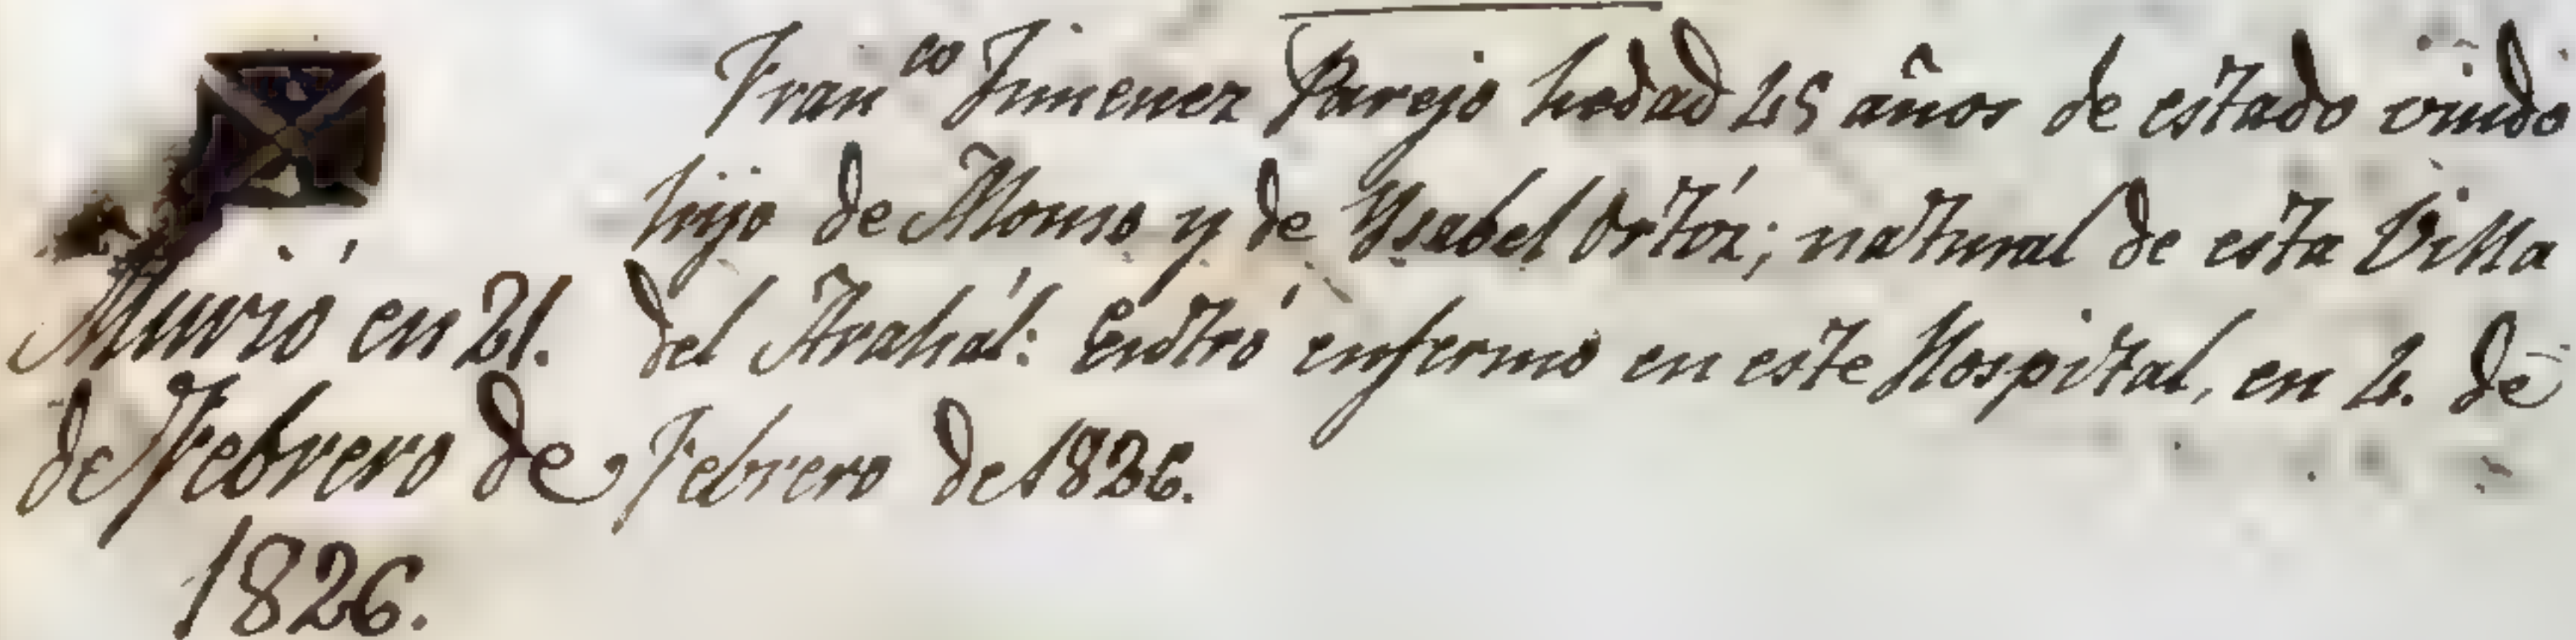 Fran^co Jimenez Parejo hedad 45 años de estado viudo
hijo de Alonso y de Ysabel Ortíz; natural de esta Villa
del Arahál: Entró enfermo en este Hospital, en 4. de
Febrero de 1826.
Murió en 21.
de Febrero de
1826.